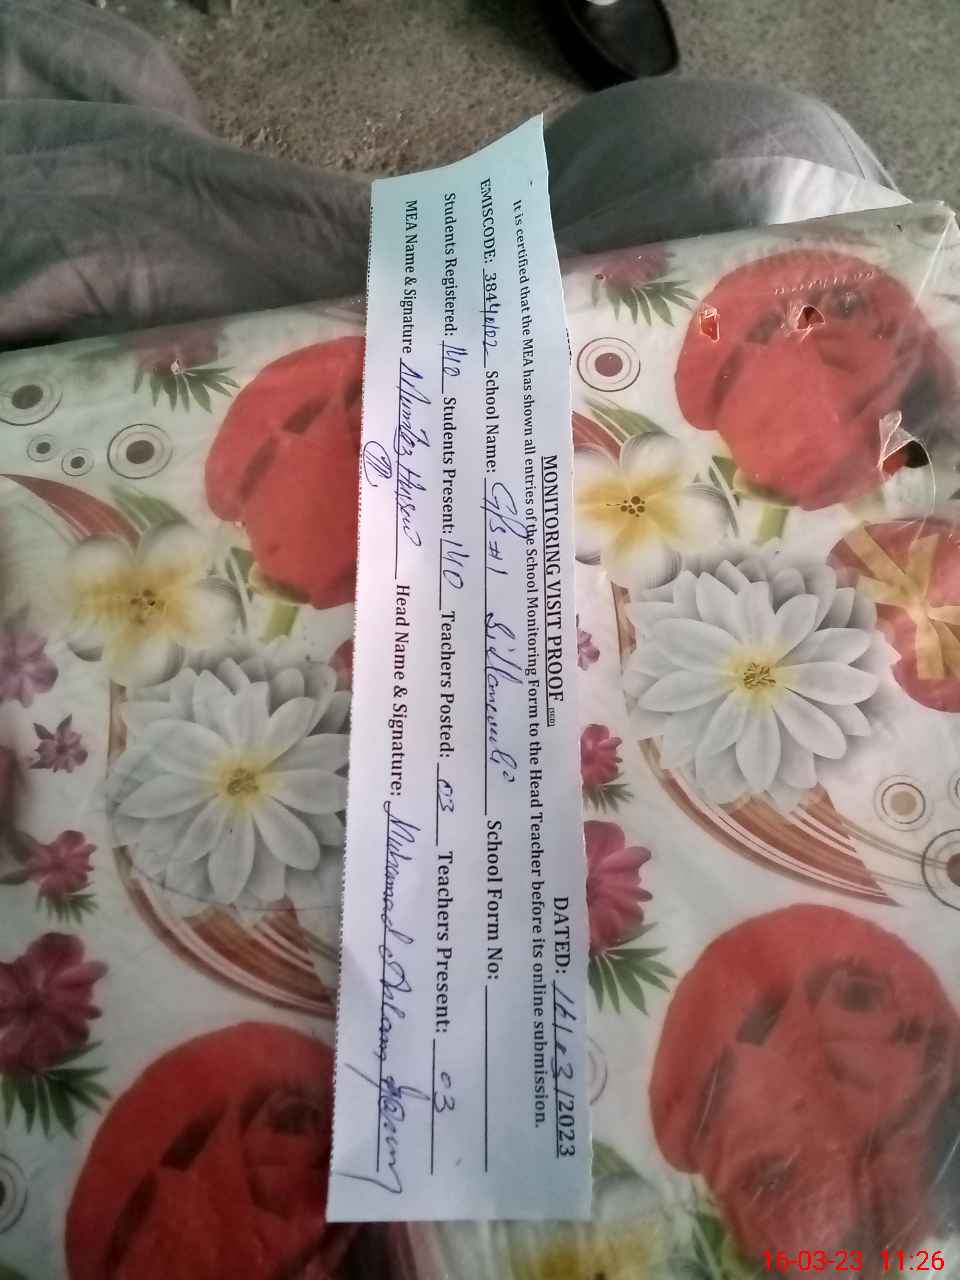 MONITORING VISIT PROOF (SED) DATED: 16/03/2023
It is certified that the MEA has shown all entries of the School Monitoring Form to the Head Teacher before its online submission.
EMISCODE: 38440102 School Name: G/S #1 School Form No:
Students Registered: 140 Students Present: 140 Teachers Posted: 03 Teachers Present: 03
MEA Name & Signature Mumtaz Hassan Head Name & Signature: Muhammad Aslam
16-03-23 11:26